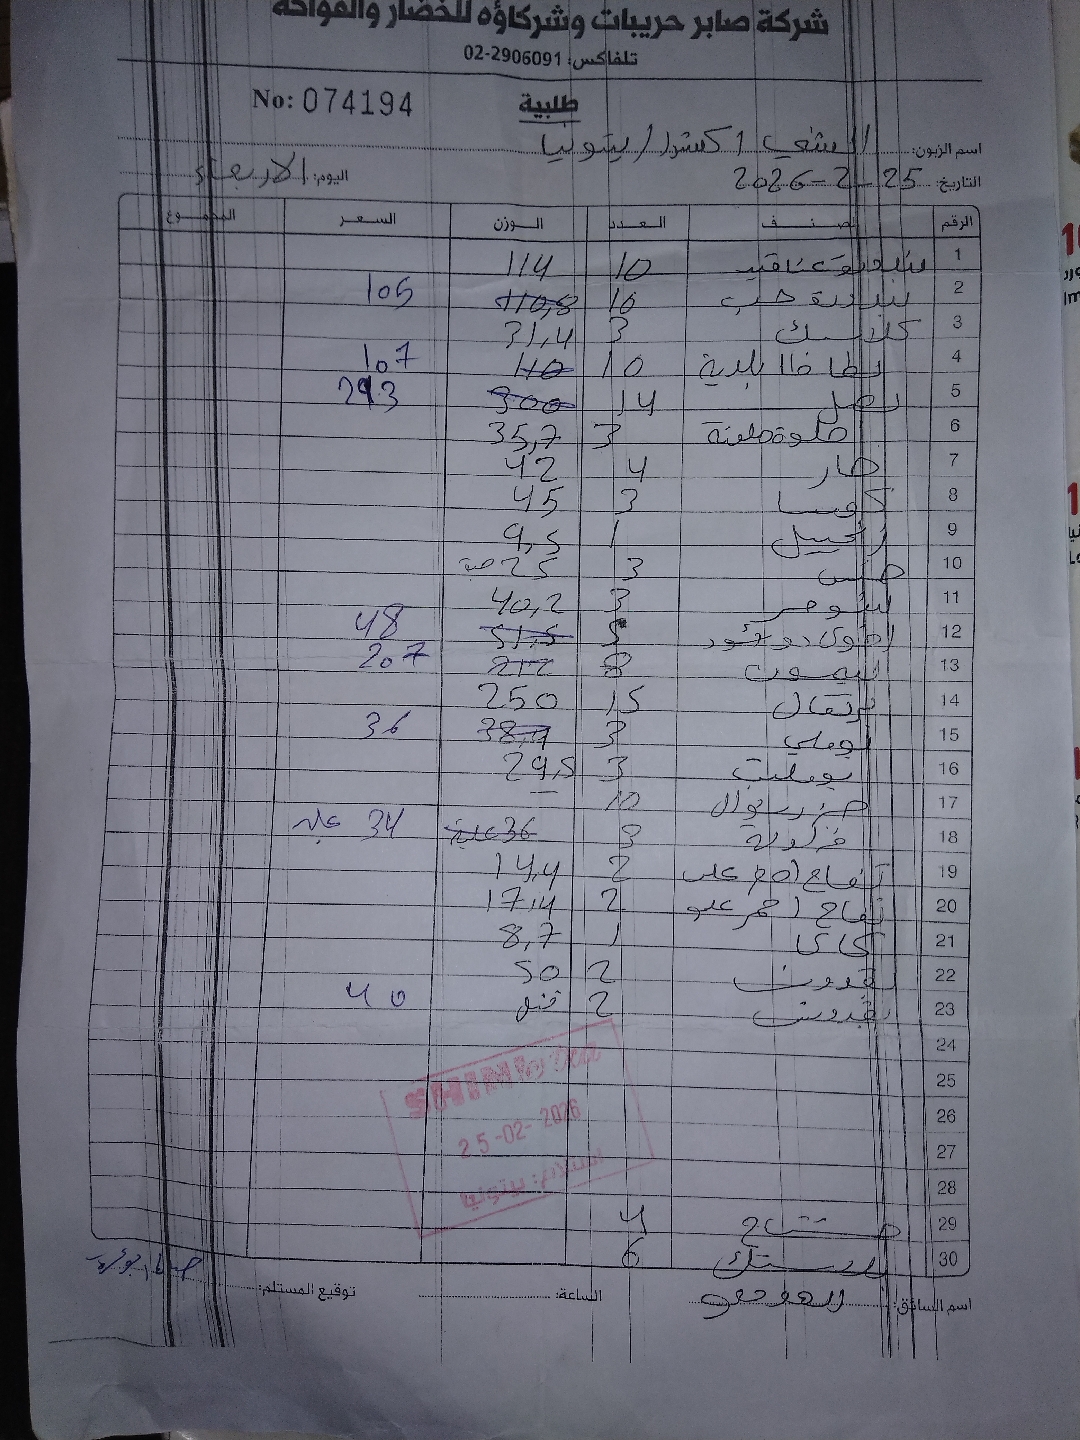 شركة صابر حريبات وشركاؤه للخضار والفواكه
تلفاكس: 02-2906091
No: 074194
طلبية
اسم الزبون: الشني اكسترا / بيتونيا
التاريخ: 25-2-2026 اليوم: الاربعاء
الرقم الصنف العدد الوزن السعر المجموع
1 بندورة عناقيد 10 114
2 بندورة حب 10 110,8 105
3 كلاسيك 3 31,4
4 بطاطا بلدية 10 110 107
5 بصل 14 300 293
6 حلوة ملونة 3 35,7
7 حار 4 42
8 كوسا 3 45
9 زنجبيل 1 9,5
10 خس 3 25 حبة
11 3 40,2
12 5 51,5 48
13 ليمون 8 212 207
14 برتقال 15 250
15 3 36
16 3 29,5
17 10
18 فراولة 3 36 علبة 34 علبة
19 تفاح 2 14,4
20 تفاح احمر 2 17,4
21 1 8,7
22 بقدونس 2 50
23 2 40
24
25
26
27
28
29 4
30 بلاستك 6
25-02-2026
استلام: بيتونيا
اسم السائق: الساعة: توقيع المستلم: